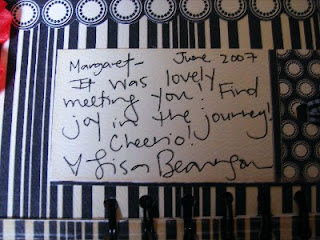 Margaret– June 2007
It was lovely
meeting you! Find
joy in the journey!
Cheerio!
Lisa Bearnson